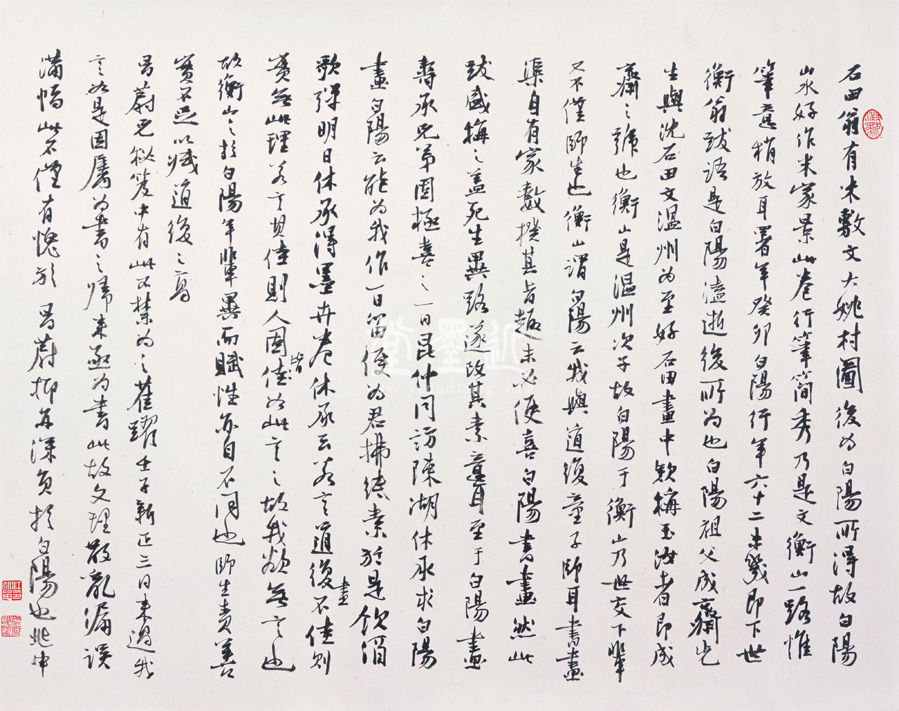 石田翁有米敷文大姚村圖後為白陽所得故白陽
山水好作米家景此卷行筆簡秀乃是文衡山一路惟
筆意稍放耳署年癸卯白陽行年六十二未幾即下世
衡翁跋語是白陽溘逝後所為也白陽祖父成齋先
生與沈石田文溫州為至好石田畫中款稱玉汝者即成
齋之號也衡山是溫州次子故白陽于衡山乃世交下輩
又不僅師生也衡山謂白陽云我與道復童子師耳書畫
渠自有家數撥其旨趣未必便喜白陽書畫然此
跋盛稱之蓋死生異路遂改其素意耳至于白陽畫
壽承兄弟固極喜之一日昆仲同訪陳湖休承求白陽
畫白陽云能為我作一日留便為君拂絹素於是飲酒
歌彈明日休承得墨卉卷休承云若言道復畫不佳則
賓無此理若言其佳則人固皆佳如此言之故我欲無言也
故衡山之於白陽年輩異而賦性亦自不同也師生責善
實不足以減道復之高
昌蔚兄秘笈中有此不禁為之雀躍壬子新正三日來過我
言如是因屬為書之歸來亟為書此故文理散亂漏誤
滿幅此不僅有愧於昌蔚抑亦深負於白陽也兆申